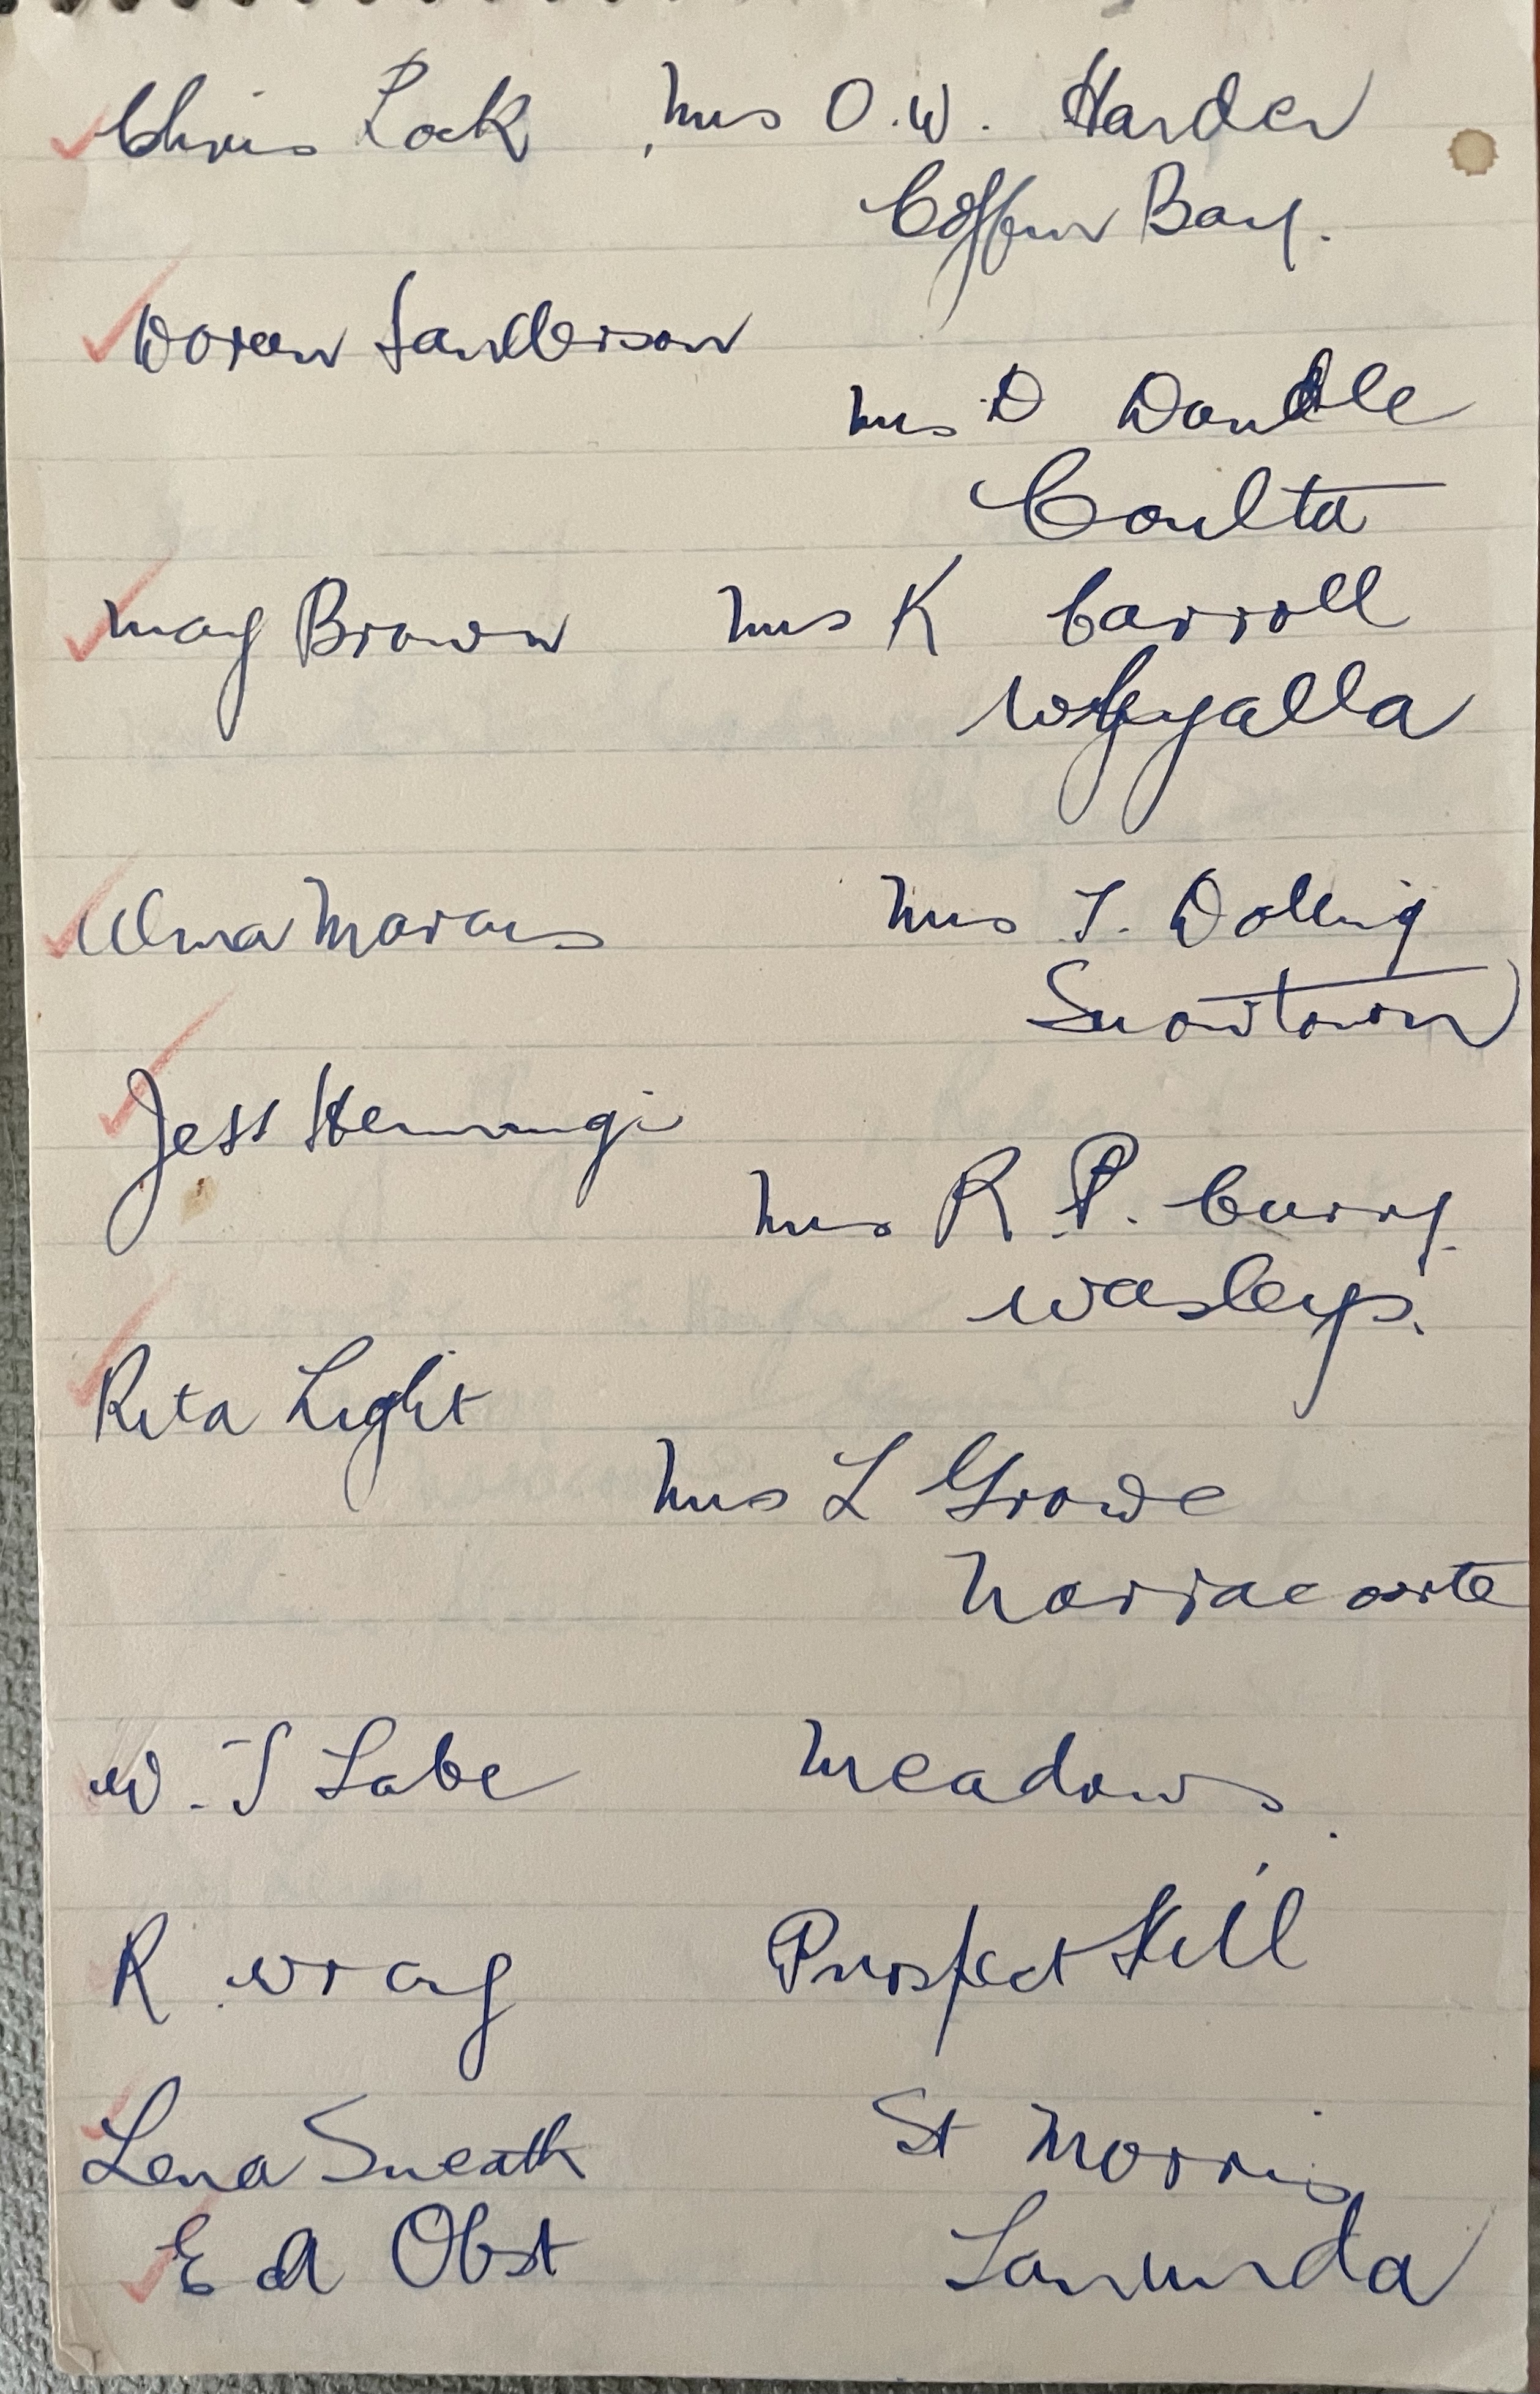 Chris Lock , Mrs O.W. Harder
Coffin Bay.
Doreen Sanderson
Mrs D Dandle
Coulta
May Brown Mrs K Carroll
Whyalla
Alma Marcus Mrs T. Dolling
Snowtown
Jess
Mrs R P. Curry
Wasleys.
Rita Light
Mrs L Growe
Narracoorte
W. J Labe Meadows.
R Wray Prospect Hill
Lena Sneath St Morris
E A Obst Tanunda